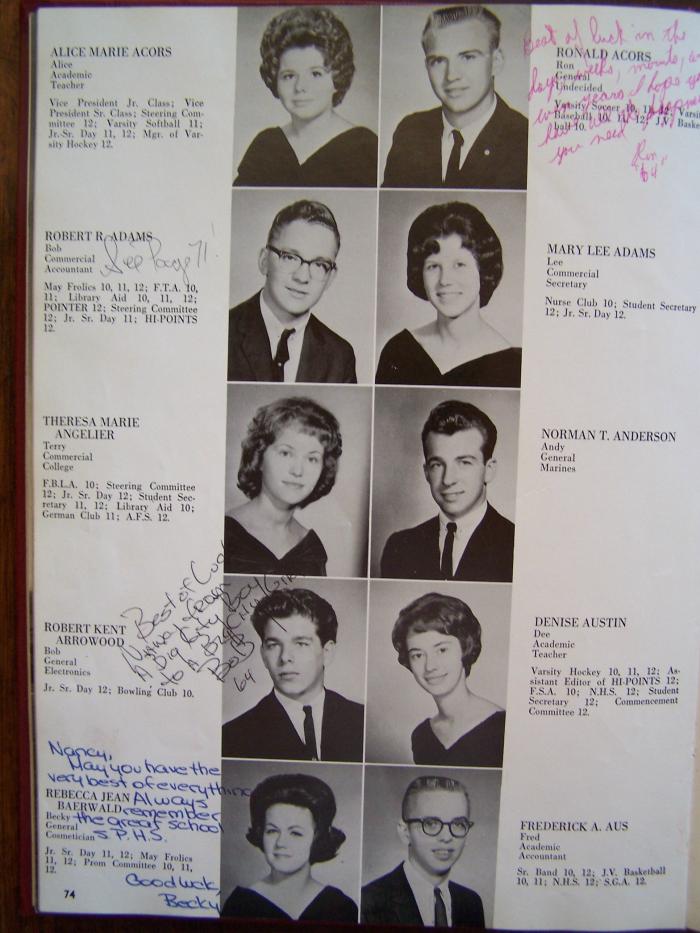 ALICE MARIE ACORS
Alice
Academic
Teacher
Vice President Jr. Class; Vice
President Sr. Class; Steering Com-
mittee 12; Varsity Softball 11;
Jr.-Sr. Day 11, 12; Mgr. of Var-
sity Hockey 12.
RONALD ACORS
Ron
General
Undecided
Varsity Soccer 10, 11, 12; Varsi
Baseball 10, 11, 12; J.V. Baske
ball 10.
Best of luck in the
days, weeks, months, an
years. I hope yo
you need
Ron
'64
ROBERT R. ADAMS
Bob
Commercial
Accountant
See page 71!
May Frolics 10, 11, 12; F.T.A. 10,
11; Library Aid 10, 11, 12;
POINTER 12; Steering Committee
12; Jr. Sr. Day 11; HI-POINTS
12.
MARY LEE ADAMS
Lee
Commercial
Secretary
Nurse Club 10; Student Secretary
12; Jr. Sr. Day 12.
THERESA MARIE
ANGELIER
Terry
Commercial
College
F.B.L.A. 10; Steering Committee
12; Jr. Sr. Day 12; Student Sec-
retary 11, 12; Library Aid 10;
German Club 11; A.F.S. 12.
NORMAN T. ANDERSON
Andy
General
Marines
ROBERT KENT
ARROWOOD
Bob
General
Electronics
Jr. Sr. Day 12; Bowling Club 10.
Best of Luck
Always from
A Big City Boy
to A
Bob
64
DENISE AUSTIN
Dee
Academic
Teacher
Varsity Hockey 10, 11, 12; As-
sistant Editor of HI-POINTS 12;
F.S.A. 10; N.H.S. 12; Student
Secretary 12; Commencement
Committee 12.
Nancy,
May you have the
very best of everything
Always
remember
the great school
S.P.H.S.
Good luck,
Becky
REBECCA JEAN
BAERWALD
Becky
General
Cosmetician
Jr. Sr. Day 11, 12; May Frolics
11, 12; Prom Committee 10, 11,
12.
FREDERICK A. AUS
Fred
Academic
Accountant
Sr. Band 10, 12; J.V. Basketball
10, 11; N.H.S. 12; S.G.A. 12.
74